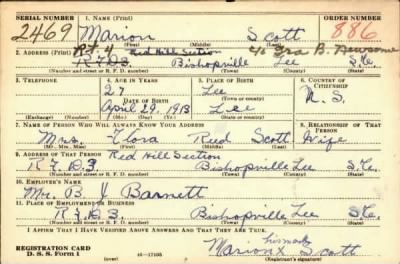 SERIAL NUMBER 1. NAME (Print) ORDER NUMBER
2469 Marion Scott 886
(First) (Middle) (Last)
2. ADDRESS (Print) Rt. 4 Red Hill Section c/o Ira B. Newsome
R.F.D.3 Bishopville Lee S.C.
(Number and street or R. F. D. number) (Town) (County) (State)
3. TELEPHONE 4. AGE IN YEARS 5. PLACE OF BIRTH 6. COUNTRY OF CITIZENSHIP
27 Lee
DATE OF BIRTH (Town or county)
April 29, 1913 Lee U.S.
(Exchange) (Number) (Mo.) (Day) (Yr.) (State or country)
7. NAME OF PERSON WHO WILL ALWAYS KNOW YOUR ADDRESS 8. RELATIONSHIP OF THAT PERSON
Mrs. Flora Reed Scott Wife
(Mr., Mrs., Miss) (First) (Middle) (Last)
9. ADDRESS OF THAT PERSON Red Hill Section
R.F.D.3. Bishopville Lee S.C.
(Number and street or R. F. D. number) (Town) (County) (State)
10. EMPLOYER'S NAME
Mr. B. Y Barnett
11. PLACE OF EMPLOYMENT OR BUSINESS
R.F.D.3 Bishopville Lee S.C.
(Number and street or R. F. D. number) (Town) (County) (State)
I AFFIRM THAT I HAVE VERIFIED ABOVE ANSWERS AND THAT THEY ARE TRUE.
his mark
REGISTRATION CARD Marion X Scott
D. S. S. Form 1 16—17105 (over) (Registrant's signature)